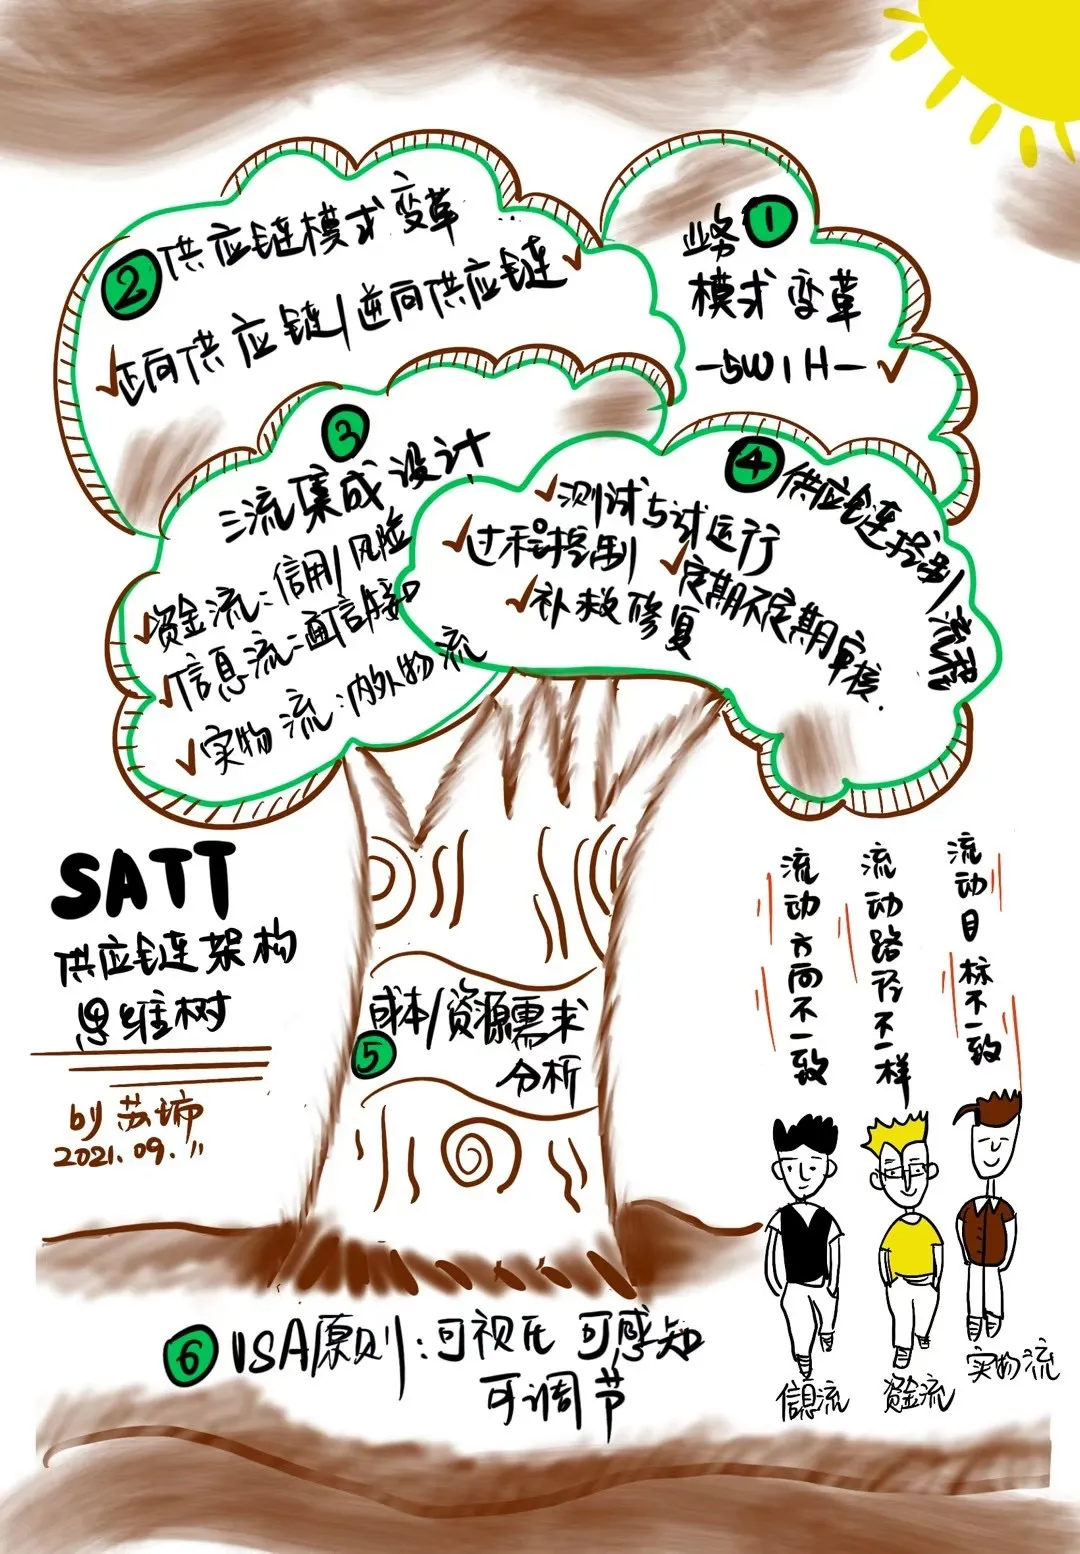 1 业务
模式变革
—5W1H—
2 供应链模式变革
正向供应链/逆向供应链
3
三流集成设计
资金流:信用/风险
信息流:通信接口
实物流:内外物流
4 供应链控制流程
测试与试运行
过程控制
定期不定期审核.
补救修复
SATT
供应链架构
思维树
by 苏
2021.09.11
5 成本/资源需求
分析
6 VSA原则:可视化 可感知
可调节
流动方向不一致
流动路径不一样
流动目标不一致
信息流
资金流
实物流